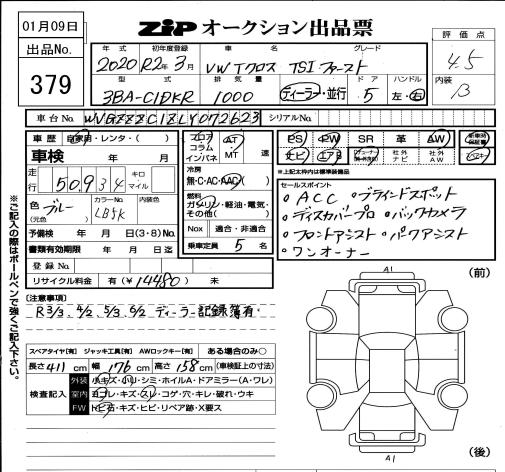 01月09日
ZIP オークション出品票
出品No.
379
評価点
4.5
内装
B
年式 初年度登録 車名 グレード
2020 R2年3月 VW Tクロス TSI ファースト
型式 排気量 ドア ハンドル
3BA-C1DKR 1000 ディーラー・並行 5 左・右
車台No. WVGZZZC1ZLY072623 シリアルNo.
車歴 自家用・レンタ・( )
車検 年 月
走行 50,934 キロ マイル
色 ブルー (元色) カラーNo. LB5K 内装色
予備検 年 月 日(3・8)No.
書類有効期限 年 月 日迄
登録No.
リサイクル料金 有(¥14480) 未
フロア コラム インパネ
AT MT 速
冷房
無・C・AC・AAC( )
燃料
ガソリン・軽油・電気・その他( )
Nox 適合・非適合
乗車定員 5 名
PS PW SR 革 AW 新車時保証書
ナビ エアB 社外ナビ 社外AW 取説
※上記太枠内は標準装備品
セールスポイント
・ACC ・ブラインドスポット
・ディスカバープロ ・バックカメラ
・フロントアシスト ・パークアシスト
・ワンオーナー
[注意事項]
R3/3、4/2、5/3、6/2 ディーラー記録簿有・
スペアタイヤ[有] ジャッキ工具[有] AWロックキー[有] ある場合のみ○
長さ 411 cm 幅 176 cm 高さ 158 cm (車検証上の寸法)
検査記入
外装 小キズ・小凹・シミ・ホイルA・ドアミラー(A・ワレ)
室内 ヨゴレ・キズ・スレ・コゲ・穴・キレ・破れ・ウキ
FW トビ石・キズ・ヒビ・リペア跡・X要ス
※ご記入の際はボールペンで強くご記入下さい。
(前)
A1
A1
(後)